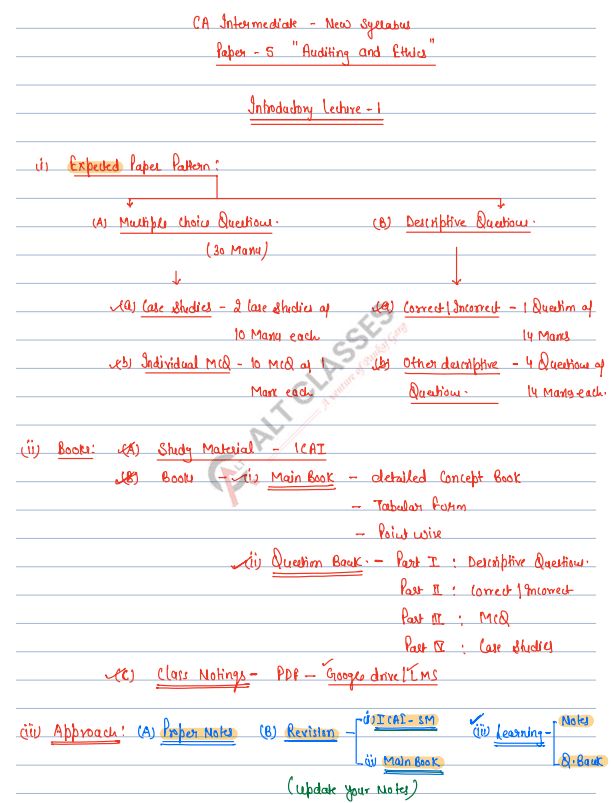 CA Intermediate - New Syllabus
Paper - 5 "Auditing and Ethics"
Introductory Lecture - 1
(i) Expected Paper Pattern:
(A) Multiple Choice Questions. (B) Descriptive Questions.
(30 Marks)
(a) Case Studies - 2 Case Studies of (a) Correct/Incorrect - 1 Question of
10 Marks each 14 Marks
(b) Individual MCQ - 10 MCQ of 1 (b) Other descriptive - 4 Questions of
Mark each Questions. 14 Marks each.
ALT CLASSES
A venture of Pankaj Garg
(ii) Books: (A) Study Material - ICAI
(B) Books - (i) Main Book - detailed Concept Book
- Tabular Form
- Point wise
(ii) Question Bank. - Part I : Descriptive Questions.
Part II : Correct/Incorrect
Part III : MCQ
Part IV : Case Studies
(C) Class Notings - PDF - Google drive/LMS
(i) ICAI - SM Notes
(iii) Approach: (A) Proper Notes (B) Revision (iii) Learning -
(ii) Main Book Q. Bank
(update your Notes)